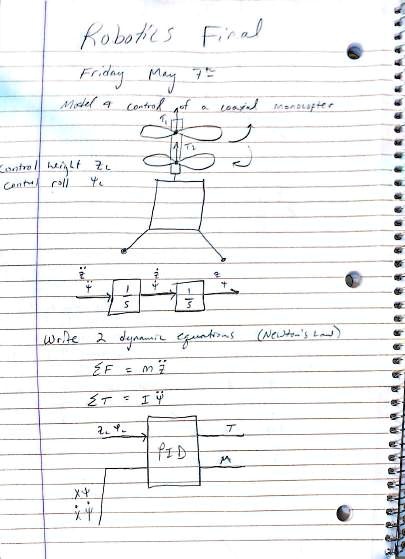 Robotics Final
Friday May 7th
Model & control of a coaxial monocopter
T₁
T₂
Control height Z_c
Control roll Ψ_c
z̈ ż z
ψ̈ ψ̇ ψ
1/S 1/S
Write 2 dynamic equations (Newton's Law)
ΣF = m z̈
ΣT = I ψ̈
Z_c Ψ_c T
PID
M